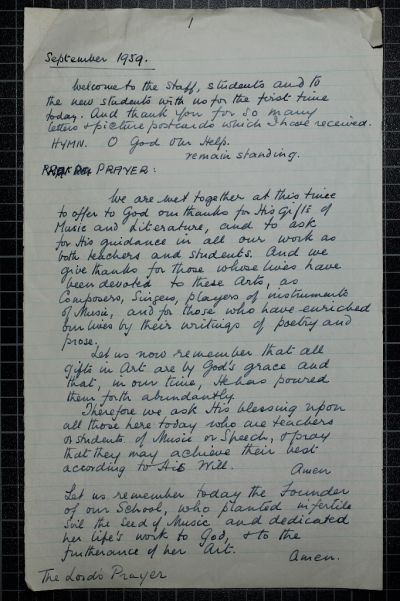 1
September 1959.
Welcome to the Staff, students and to
the new students with us for the first time
today. And thank you for so many
letters + picture postcards which I have received.
HYMN. O God our Help.
remain standing.
PRAYER:
We are met together at this time
to offer to God our thanks for His Gifts of
Music and Literature, and to ask
for His guidance in all our work as
both teachers and students. And we
give thanks for those whose lives have
been devoted to these Arts, as
Composers, Singers, players of instruments
of Music, and for those who have enriched
our lives by their writings of poetry and
prose.
Let us now remember that all
gifts in Art are by God's grace and
that, in our time, He has poured
them forth abundantly.
Therefore we ask His blessing upon
all those here today who are teachers
or students of Music or Speech, + pray
that they may achieve their best
according to His Will. Amen
Let us remember today the Founder
of our School, who planted in fertile
Soil the Seed of Music and dedicated
her life's work to God, + to the
furtherance of her Art. Amen.
The Lord's Prayer